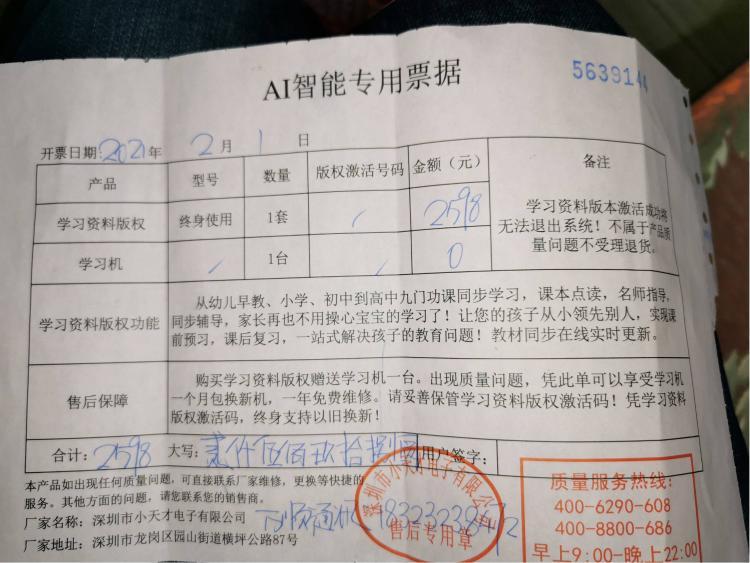 AI智能专用票据
5639144
开票日期:2021年 2月 1日
产品 型号 数量 版权激活号码 金额（元） 备注
学习资料版权 终身使用 1套 / 2598
学习资料版本激活成功将
无法退出系统！不属于产品质
量问题不受理退货。
学习机 / 1台 / 0
学习资料版权功能
从幼儿早教、小学、初中到高中九门功课同步学习，课本点读，名师指导，
同步辅导，家长再也不用操心宝宝的学习了！让您的孩子从小领先别人，实现课
前预习，课后复习，一站式解决孩子的教育问题！教材同步在线实时更新。
售后保障
购买学习资料版权赠送学习机一台。出现质量问题，凭此单可以享受学习机
一个月包换新机，一年免费维修。请妥善保管学习资料版权激活码！凭学习资料
版权激活码，终身支持以旧换新！
合计: 2598 大写: 贰仟伍佰玖拾捌 用户签字:
本产品如出现任何质量问题，可直接联系厂家维修，更换等快捷的
服务。其他方面的问题，请您联系您的销售商。
厂家名称: 深圳市小天才电子有限公司
厂家地址: 深圳市龙岗区园山街道横坪公路87号
深圳市小天才电子有限公司
售后专用章
质量服务热线:
400-6290-608
400-8800-686
早上9:00-晚上22:00